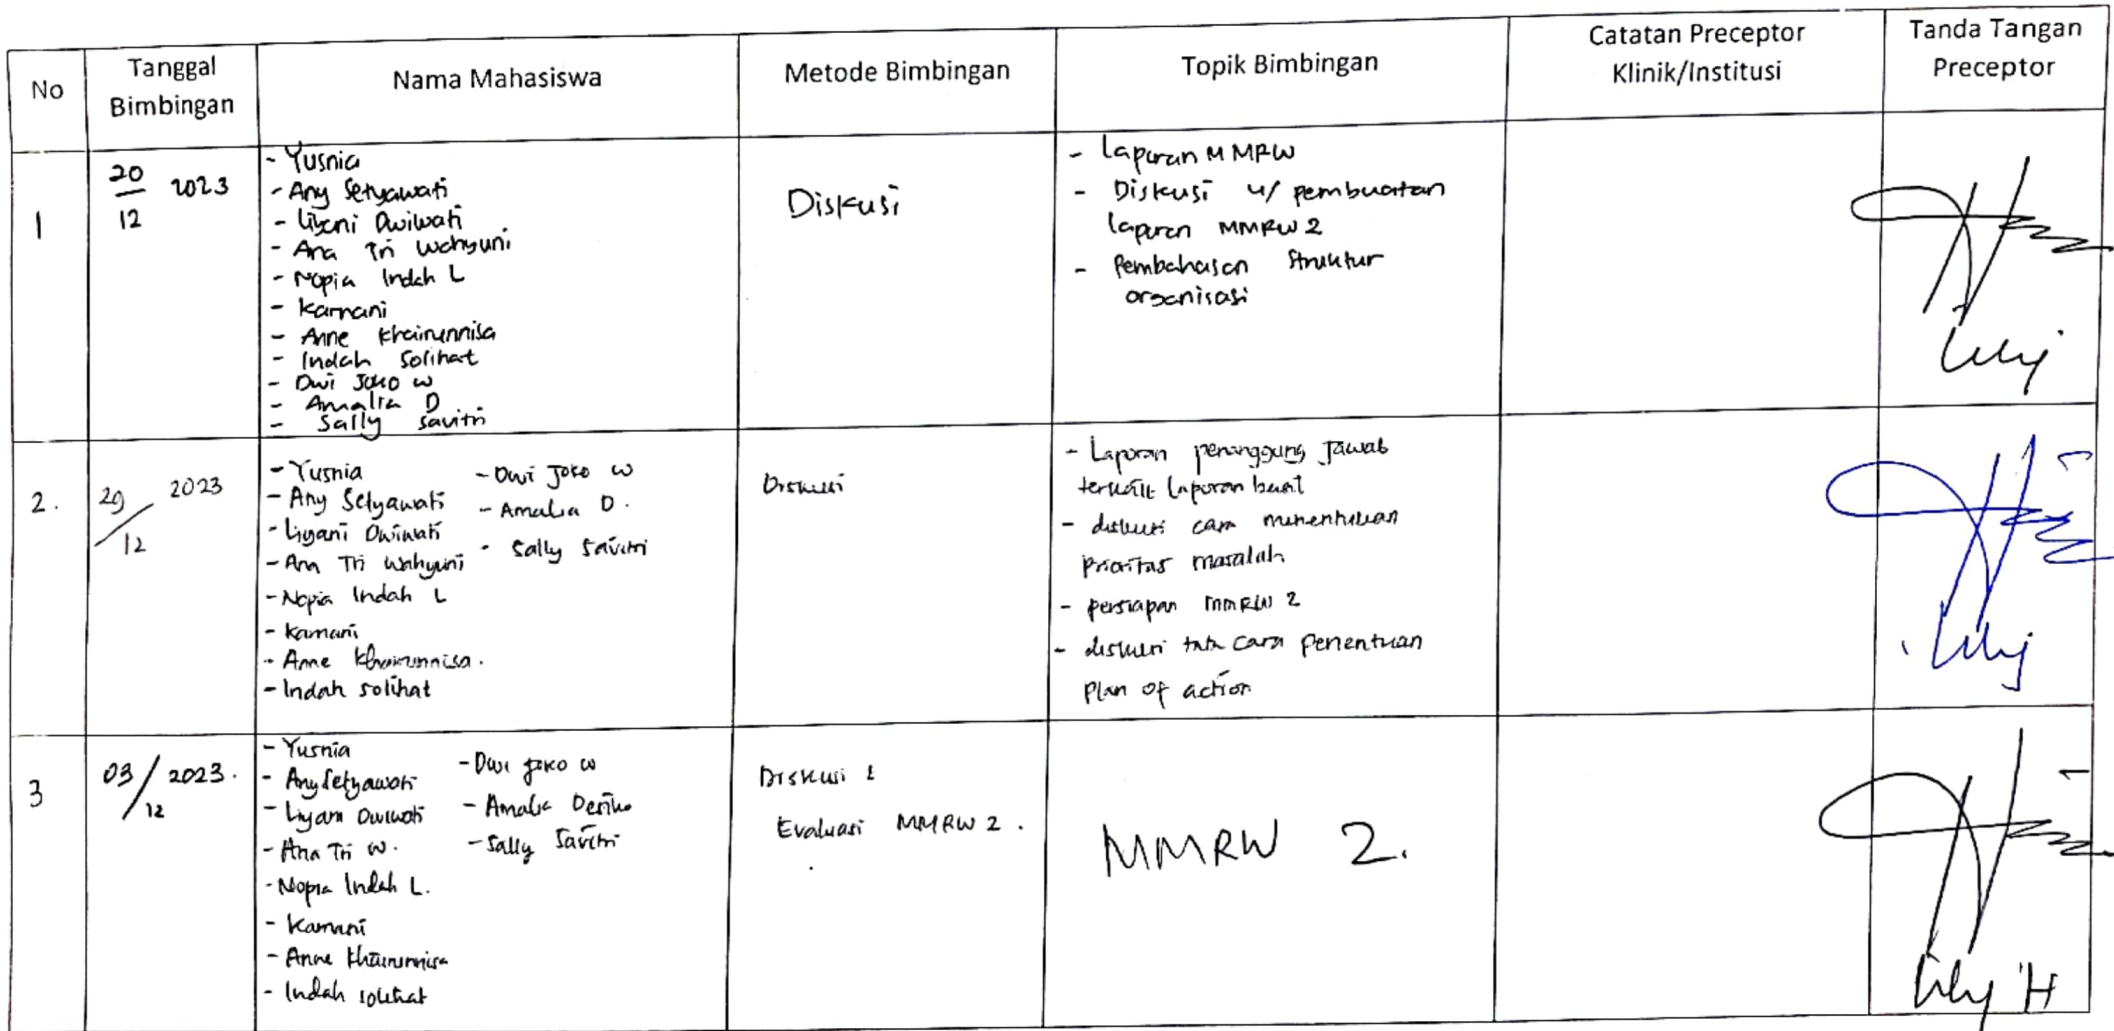 No
Tanggal
Bimbingan
Nama Mahasiswa
Metode Bimbingan
Topik Bimbingan
Catatan Preceptor
Klinik/Institusi
Tanda Tangan
Preceptor
1
20/12 2023
- Yusnia
- Any Setyawati
- Liyani Dwiwati
- Ana Tri Wahyuni
- Nopia Indah L
- Karnani
- Anne Khairunnisa
- Indah Solihat
- Dwi Joko W
- Amalia D
- Sally Savitri
Diskusi
- Laporan MMRW
- Diskusi u/ pembuatan
laporan MMRW 2
- Pembahasan Struktur
organisasi
Lily
2.
29/12 2023
- Yusnia
- Any Setyawati
- Liyani Dwiwati
- Ana Tri Wahyuni
- Nopia Indah L
- Karnani
- Anne Khairunnisa.
- Indah Solihat
- Dwi Joko W
- Amalia D.
- Sally Savitri
Diskusi
- Laporan penanggung Jawab
terkait laporan
- diskusi cara menentukan
prioritas masalah
- persiapan MMRW 2
- diskusi tata cara penentuan
plan of action
Lily
3
03/12 2023.
- Yusnia
- Any Setyawati
- Liyani Dwiwati
- Ana Tri W.
- Nopia Indah L.
- Karnani
- Anne Khairunnisa
- Indah Solihat
- Dwi Joko W
- Amalia
- Sally Savitri
Diskusi &
Evaluasi MMRW 2.
MMRW 2.
Lily H